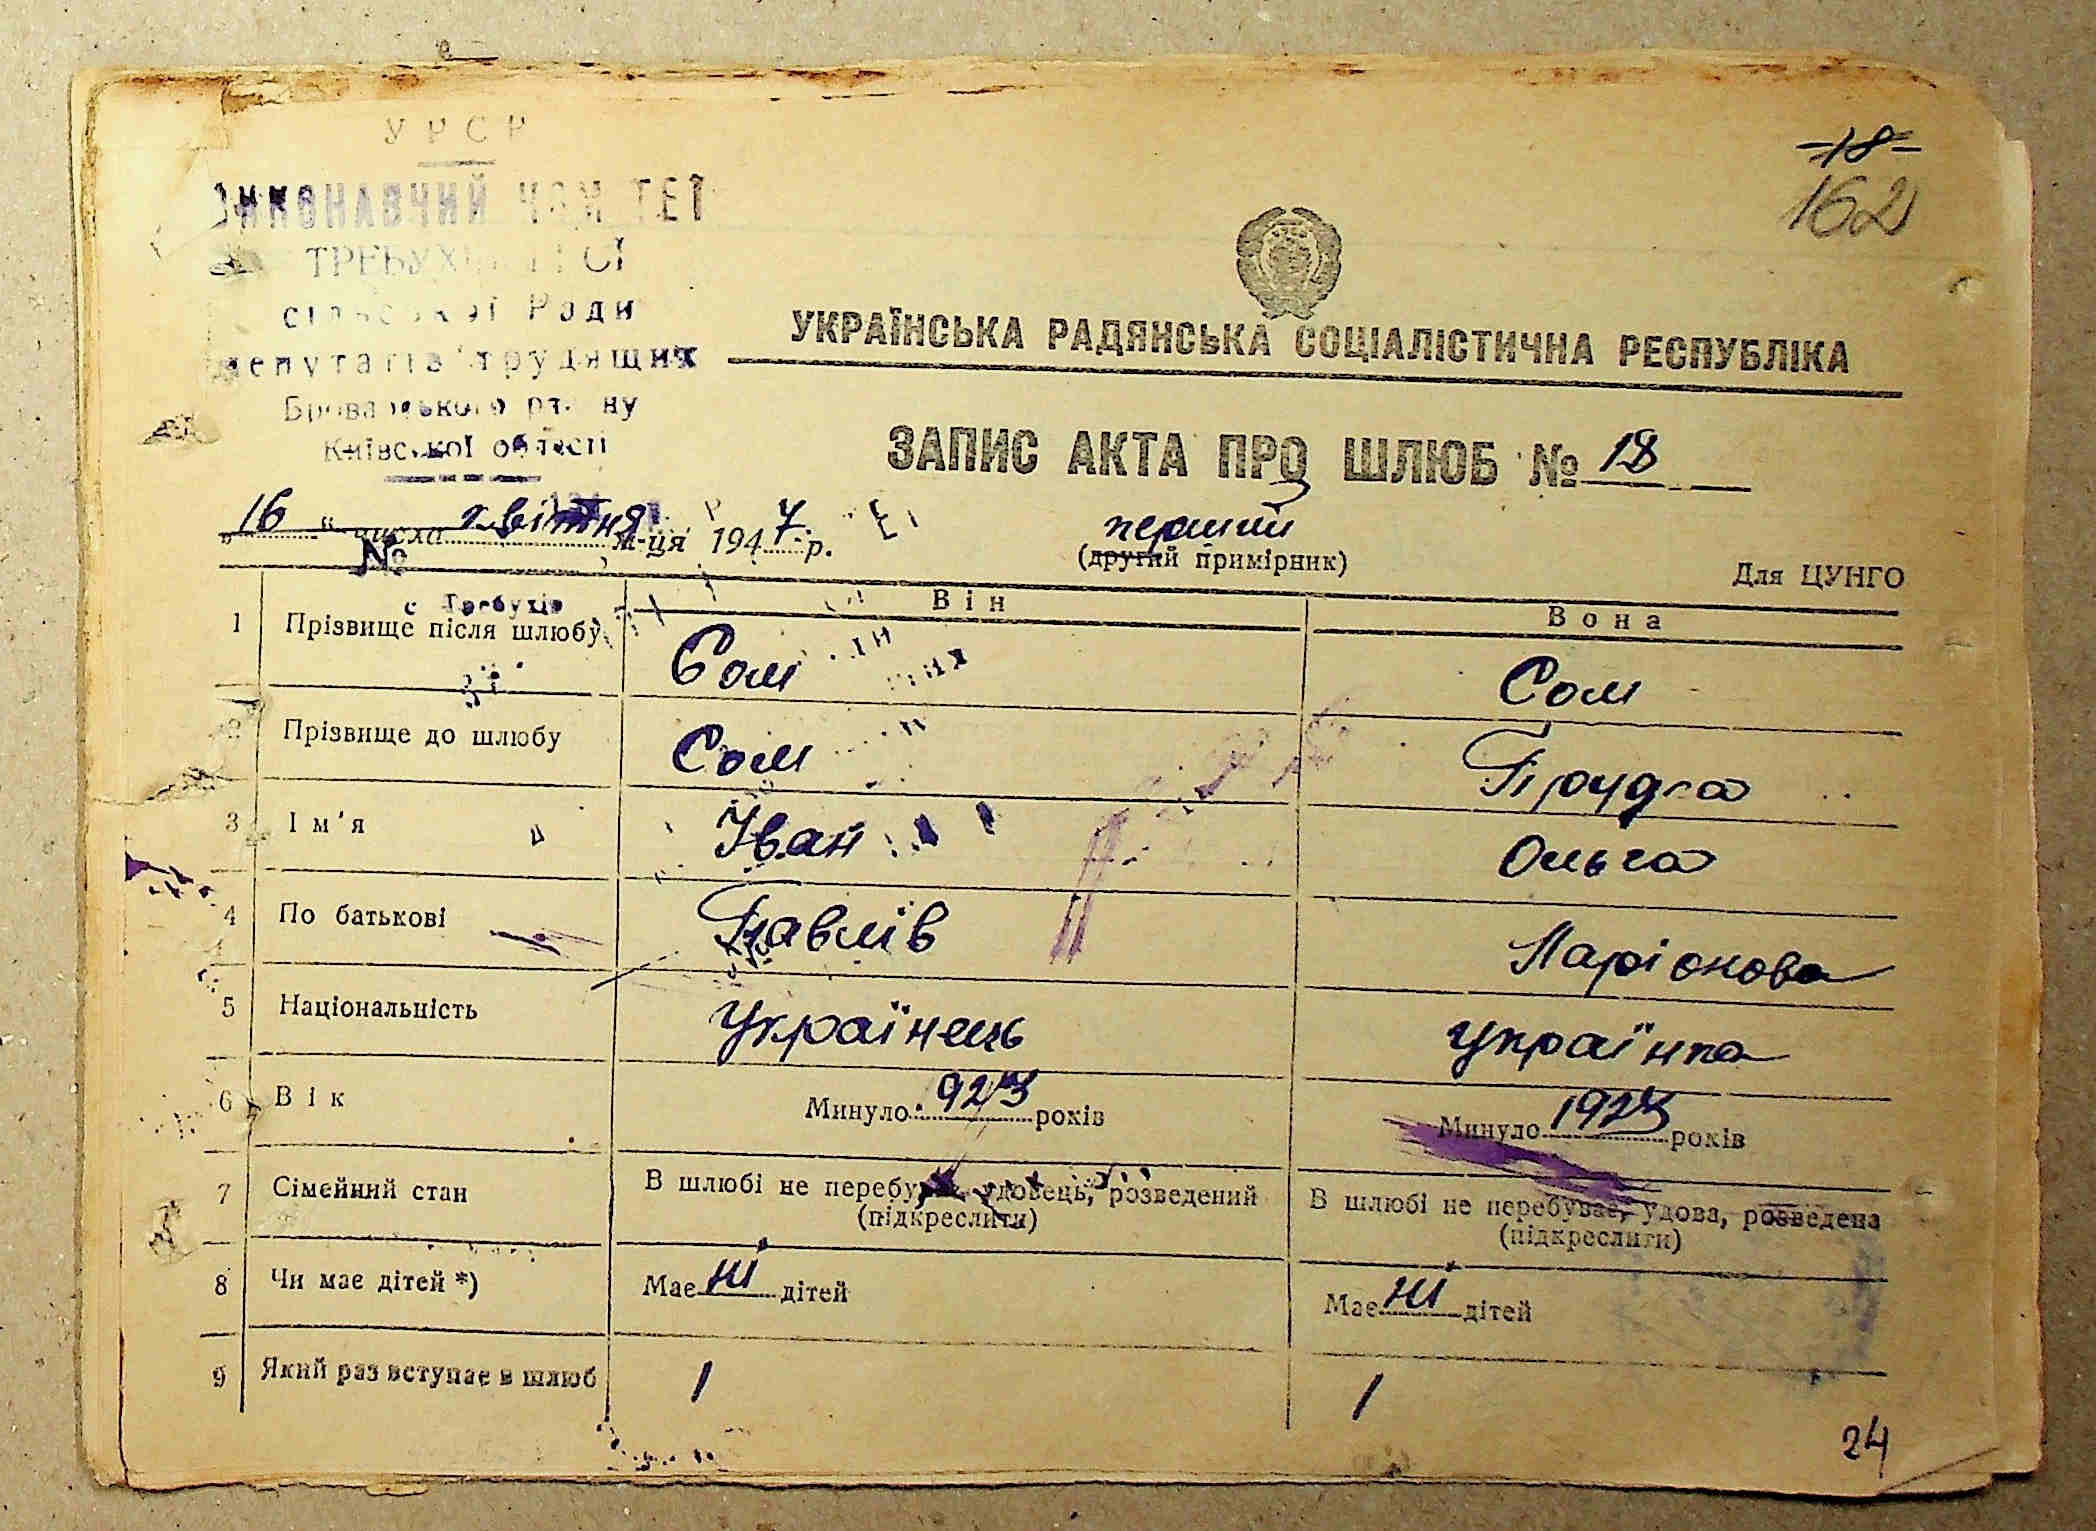 УРСР
ВИКОНАВЧИЙ КОМІТЕТ
ТРЕБУХІВСЬКОЇ
сільської Ради
депутатів трудящих
Броварського району
Київської області
-18-
162
УКРАЇНСЬКА РАДЯНСЬКА СОЦІАЛІСТИЧНА РЕСПУБЛІКА
ЗАПИС АКТА ПРО ШЛЮБ № 18
„16“ числа квітня м-ця 1947 р.
перший
(другий примірник)
Для ЦУНГО
№
с Требухів
Він Вона
1 Прізвище після шлюбу Сом Сом
2 Прізвище до шлюбу Сом
3 Ім'я Іван Ольга
4 По батькові Павлів Ларіонова
5 Національність Українець Українка
6 Вік Минуло 923 років Минуло 1923 років
7 Сімейний стан В шлюбі не перебував, удовець, розведений В шлюбі не перебуває, удова, розведена
(підкреслити) (підкреслити)
8 Чи має дітей *) Має ні дітей Має ні дітей
9 Який раз вступає в шлюб 1 1
24